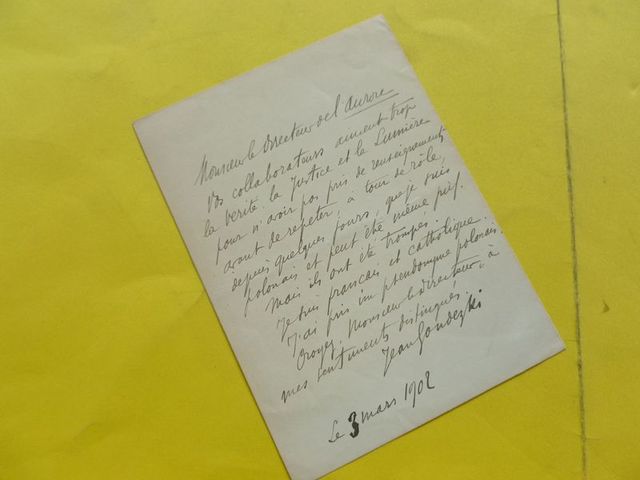 Monsieur le Directeur de l'Aurore
Vos collaborateurs aiment trop
la vérité la Justice et la Lumière
pour n'avoir pas pris de renseignements
avant de repeter, à tour de rôle,
depuis quelques jours, que je suis
polonais et peut être même juif.
Mais ils ont été trompés.
Je suis français et catholique.
J'ai pris un pseudonyme polonais.
Croyez, Monsieur le Directeur, à
mes sentiments distingués.
Jean
Le 3 mars 1902